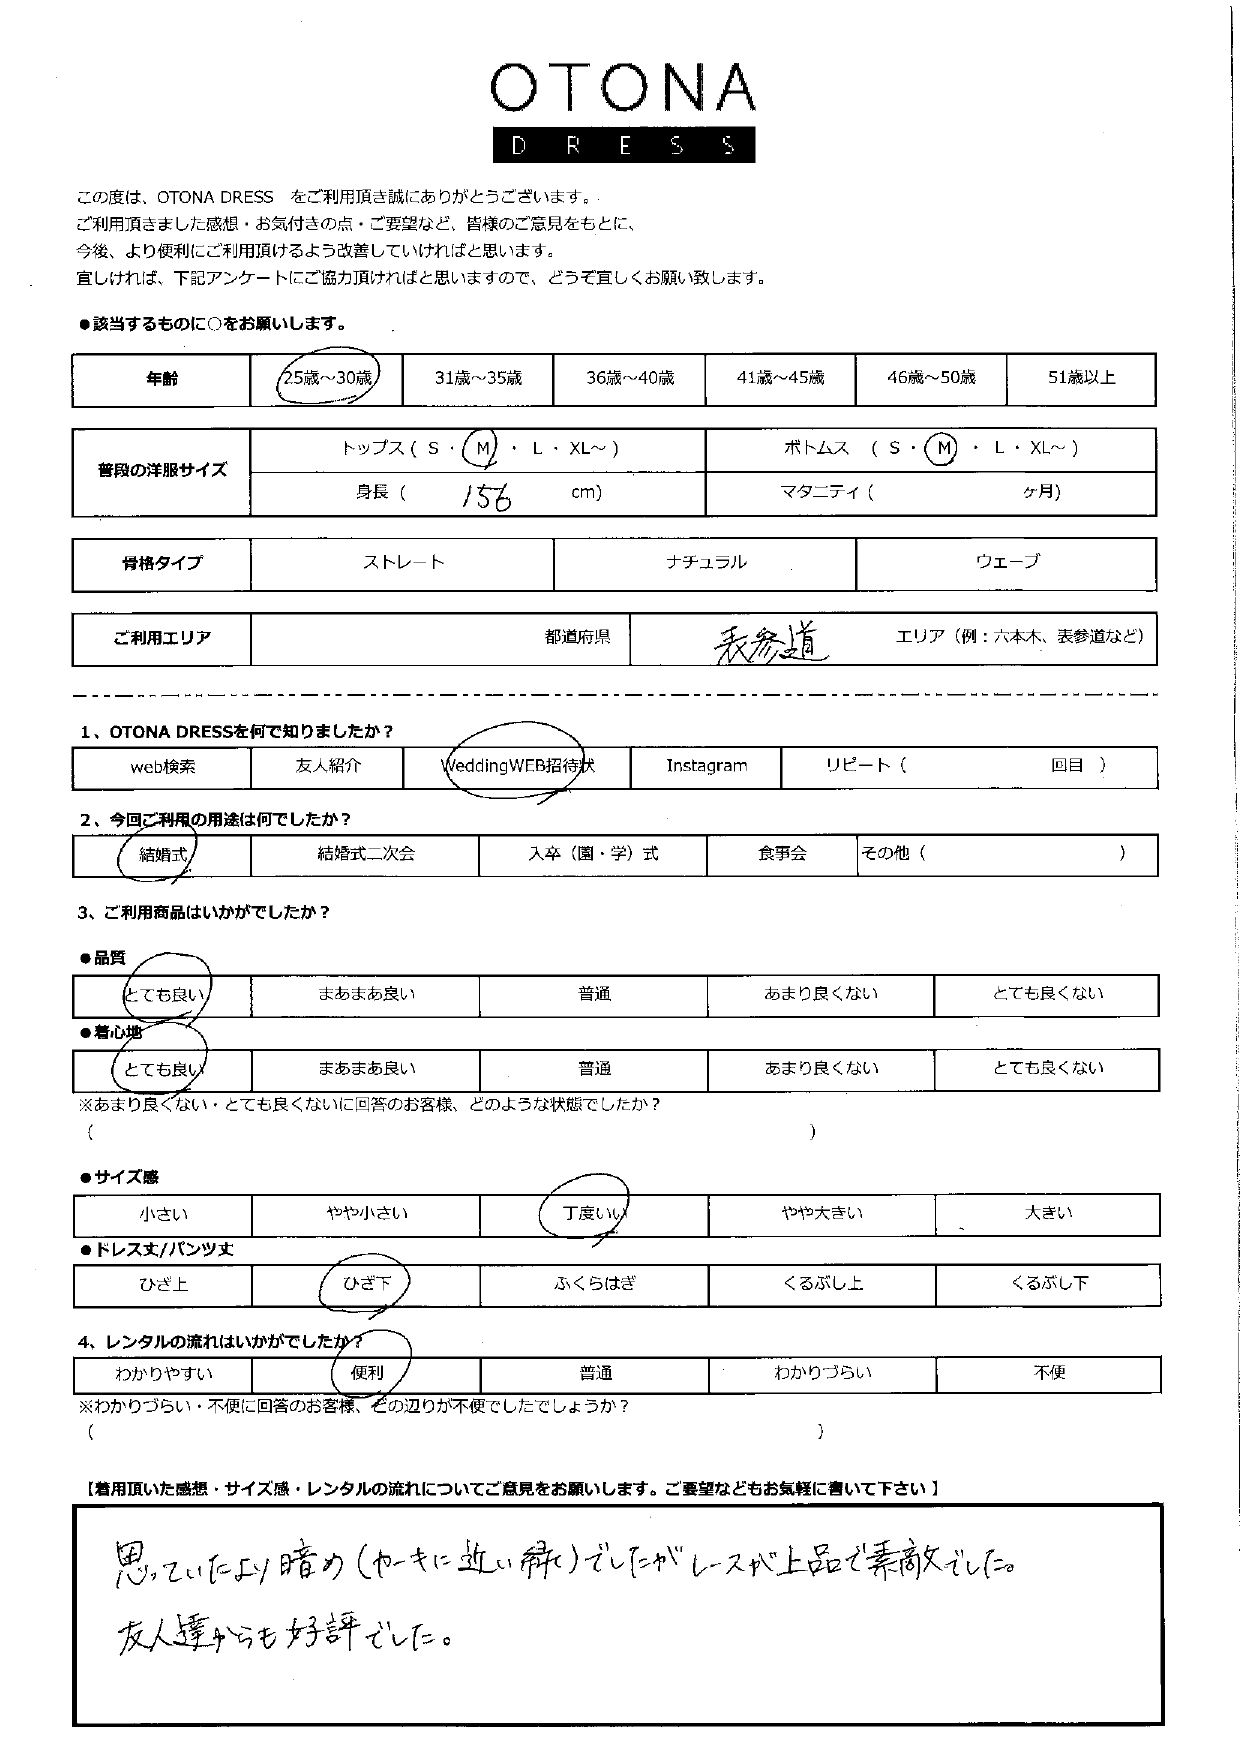 OTONA
DRESS
この度は、OTONA DRESS をご利用頂き誠にありがとうございます。
ご利用頂きました感想・お気付きの点・ご要望など、皆様のご意見をもとに、
今後、より便利にご利用頂けるよう改善していければと思います。
宜しければ、下記アンケートにご協力頂ければと思いますので、どうぞ宜しくお願い致します。
●該当するものに○をお願いします。
年齢 25歳～30歳 31歳～35歳 36歳～40歳 41歳～45歳 46歳～50歳 51歳以上
普段の洋服サイズ トップス（ S ・ M ・ L ・ XL～ ） ボトムス （ S ・ M ・ L ・ XL～ ）
身長（ 156 cm） マタニティ（ ヶ月）
骨格タイプ ストレート ナチュラル ウェーブ
ご利用エリア 都道府県 表参道 エリア（例：六本木、表参道など）
1、OTONA DRESSを何で知りましたか？
web検索 友人紹介 WeddingWEB招待状 Instagram リピート（ 回目 ）
2、今回ご利用の用途は何でしたか？
結婚式 結婚式二次会 入卒（園・学）式 食事会 その他（ ）
3、ご利用商品はいかがでしたか？
●品質
とても良い まあまあ良い 普通 あまり良くない とても良くない
●着心地
とても良い まあまあ良い 普通 あまり良くない とても良くない
※あまり良くない・とても良くないに回答のお客様、どのような状態でしたか？
（ ）
●サイズ感
小さい やや小さい 丁度いい やや大きい 大きい
●ドレス丈/パンツ丈
ひざ上 ひざ下 ふくらはぎ くるぶし上 くるぶし下
4、レンタルの流れはいかがでしたか？
わかりやすい 便利 普通 わかりづらい 不便
※わかりづらい・不便に回答のお客様、どの辺りが不便でしたでしょうか？
（ ）
【着用頂いた感想・サイズ感・レンタルの流れについてご意見をお願いします。ご要望などもお気軽に書いて下さい】
思っていたより暗め（カーキに近い緑）でしたがレースが上品で素敵でした。
友人達からも好評でした。